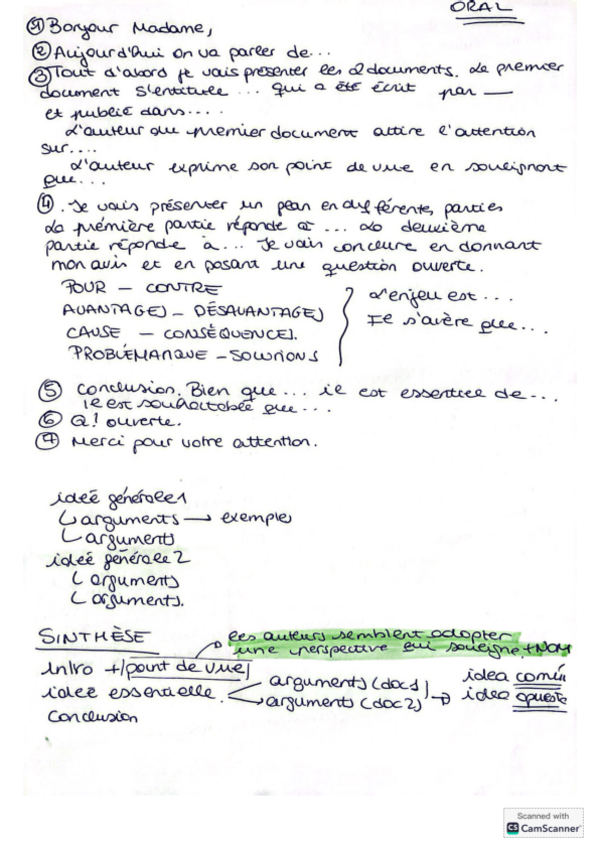 ORAL
① Bonjour Madame,
② Aujourd'hui on va parler de...
③ Tout d'abord je vais présenter les 2 documents. Le premier
document s'entitule ... qui a été écrit par —
et publié dans....
L'auteur du premier document attire l'attention
sur....
L'auteur exprime son point de vue en soulignant
que...
④. Je vais présenter un plan en différente, parties
La première partie réponde à ... La deuxième
partie réponde à... Je vais conclure en donnant
mon avis et en posant une question ouverte.
POUR — CONTRE
AVANTAGES — DÉSAVANTAGES
CAUSE — CONSÉQUENCES.
PROBLÉMATIQUE — SOLUTIONS
L'enjeu est...
Il s'avère que...
⑤ Conclusion. Bien que... il est essentiel de...
il est souhaitable que...
⑥ Q! ouverte.
⑦ Merci pour votre attention.
ideé générale 1
↳ arguments → exemples
↳ arguments
ideé générale 2
↳ arguments
↳ arguments.
SINTHÈSE
les auteurs semblent adopter
une perspective qui souligne + NOM
intro + / point de vue /
ideé essentielle.
arguments (doc1)
arguments (doc2)
idea común
idea opuesta
Conclusion
Scanned with
CS CamScanner